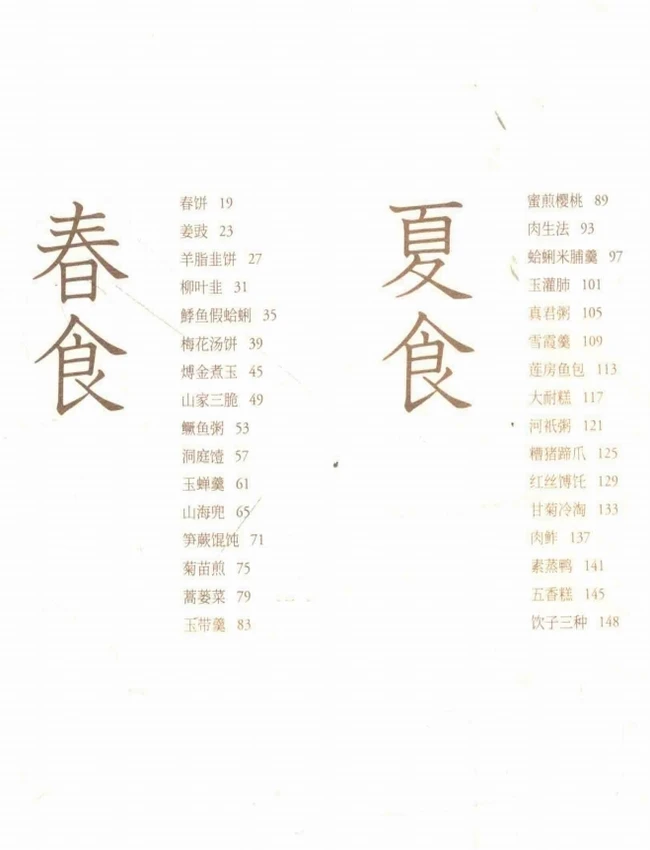 春食
春饼 19
姜豉 23
羊脂韭饼 27
柳叶韭 31
鯚鱼假蛤蜊 35
梅花汤饼 39
煿金煮玉 45
山家三脆 49
鳜鱼粥 53
洞庭馇 57
玉蝉羹 61
山海兜 65
笋蕨馄饨 71
菊苗煎 75
蒿蒌菜 79
玉带羹 83
夏食
蜜煎樱桃 89
肉生法 93
蛤蜊米脯羹 97
玉灌肺 101
真君粥 105
雪霞羹 109
莲房鱼包 113
大耐糕 117
河祇粥 121
糟猪蹄爪 125
红丝馎饦 129
甘菊冷淘 133
肉鲊 137
素蒸鸭 141
五香糕 145
饮子三种 148